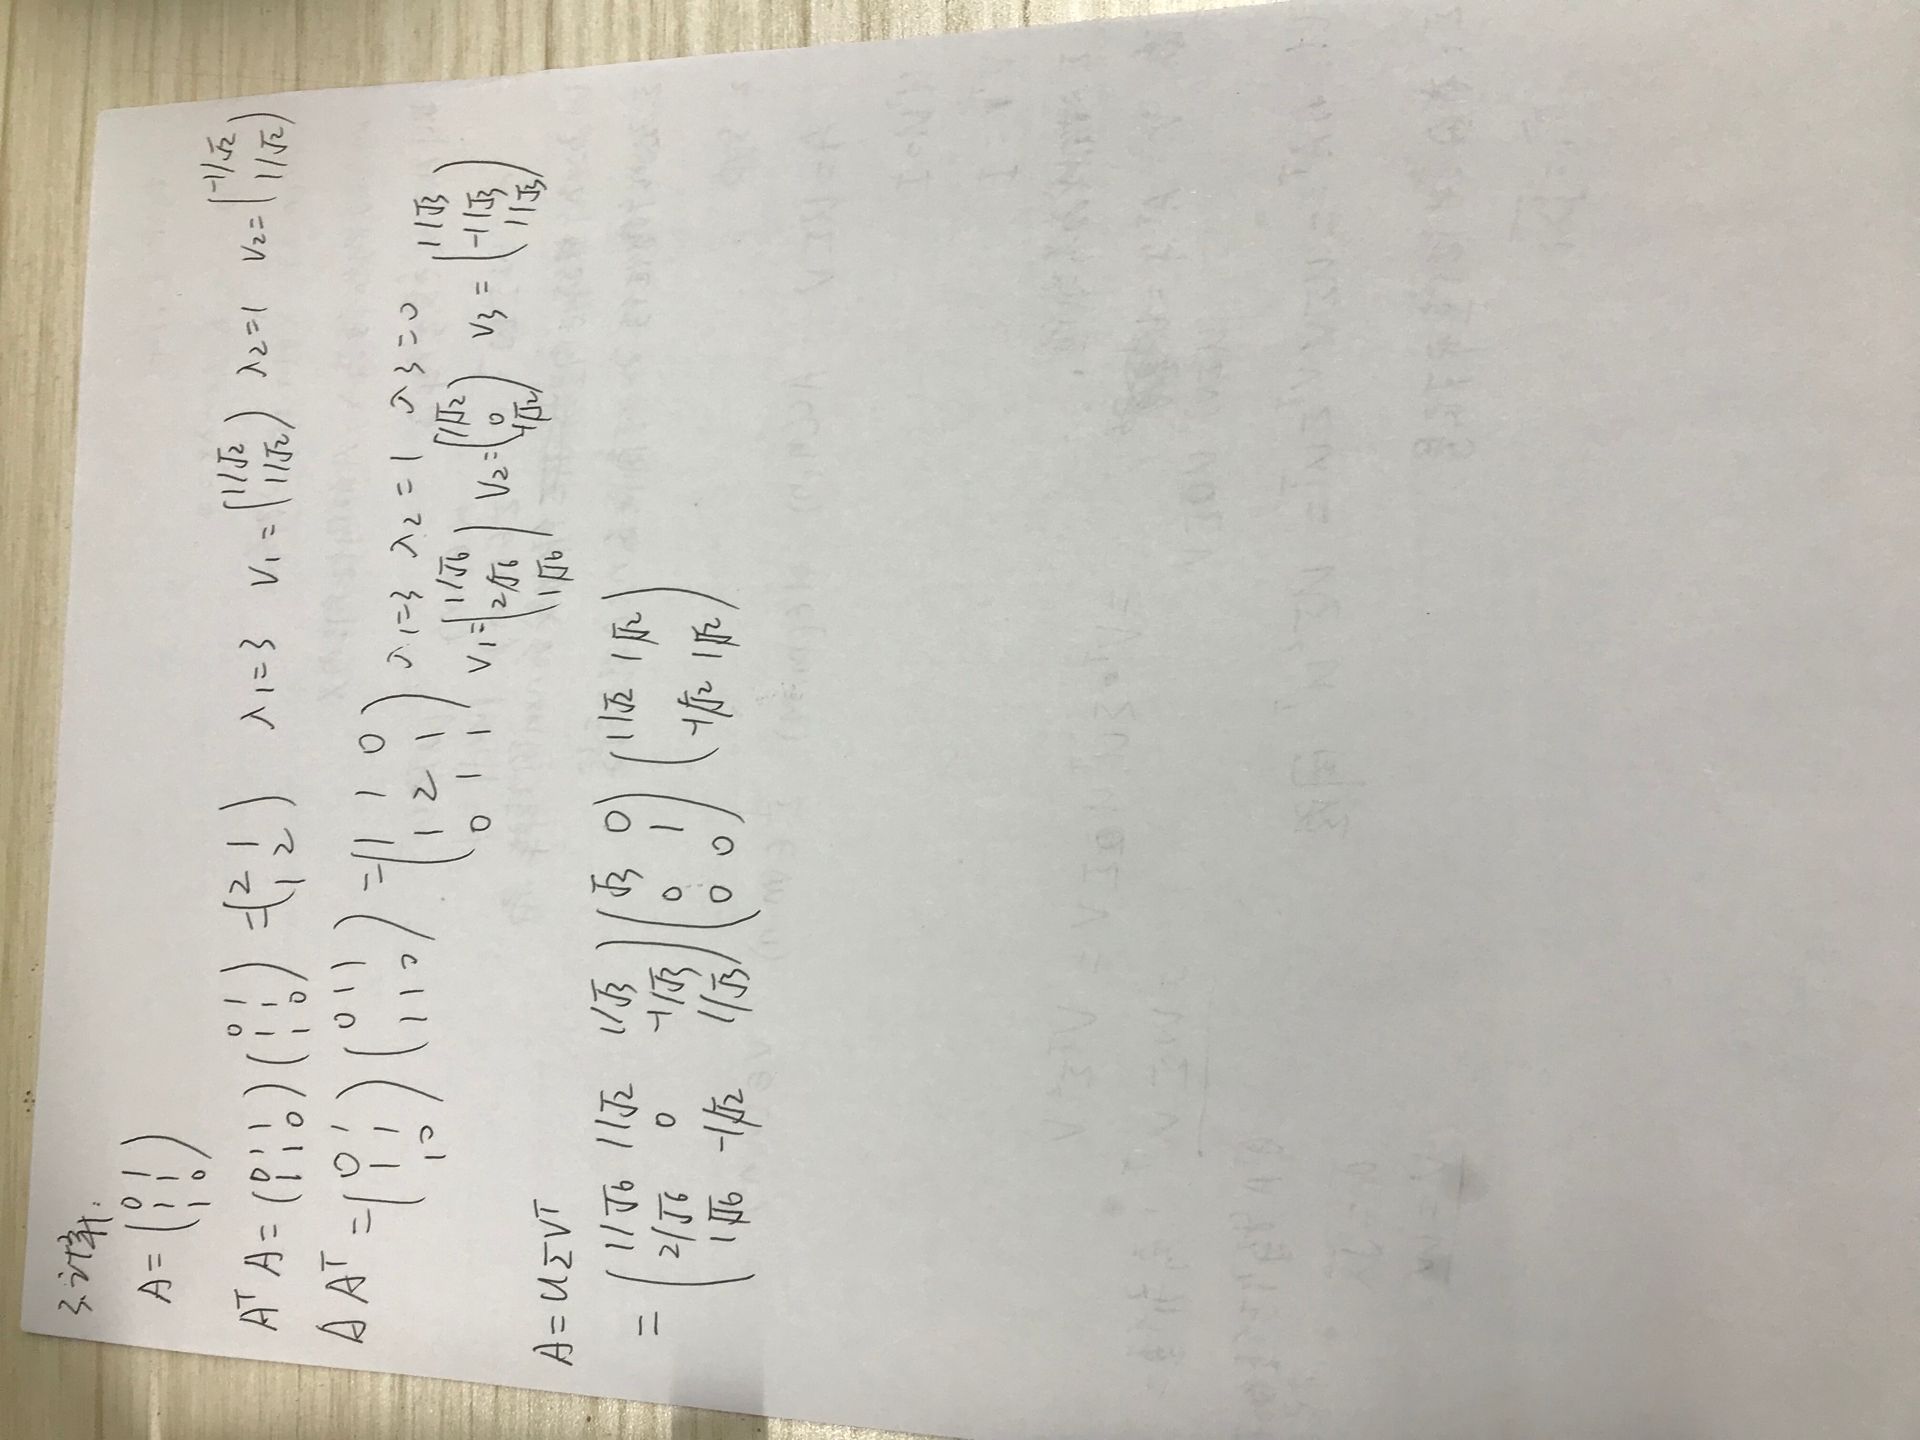 3.计算:
A = (0 1; 1 1; 1 0)
Aᵀ A = (0 1 1; 1 1 0) (0 1; 1 1; 1 0) = (2 1; 1 2) λ1=3 V1 = (1/√2; 1/√2) λ2=1 V2= (-1/√2; 1/√2)
A Aᵀ = (0 1; 1 1; 1 0) (0 1 1; 1 1 0) = (1 1 0; 1 2 1; 0 1 1) λ1=3 λ2=1 λ3=0
V1= (1/√6; 2/√6; 1/√6) V2= (1/√2; 0; -1/√2) V3 = (1/√3; -1/√3; 1/√3)
A=UΣVᵀ
= (1/√6 1/√2 1/√3; 2/√6 0 -1/√3; 1/√6 -1/√2 1/√3) (√3 0; 0 1; 0 0) (1/√2 1/√2; -1/√2 1/√2)